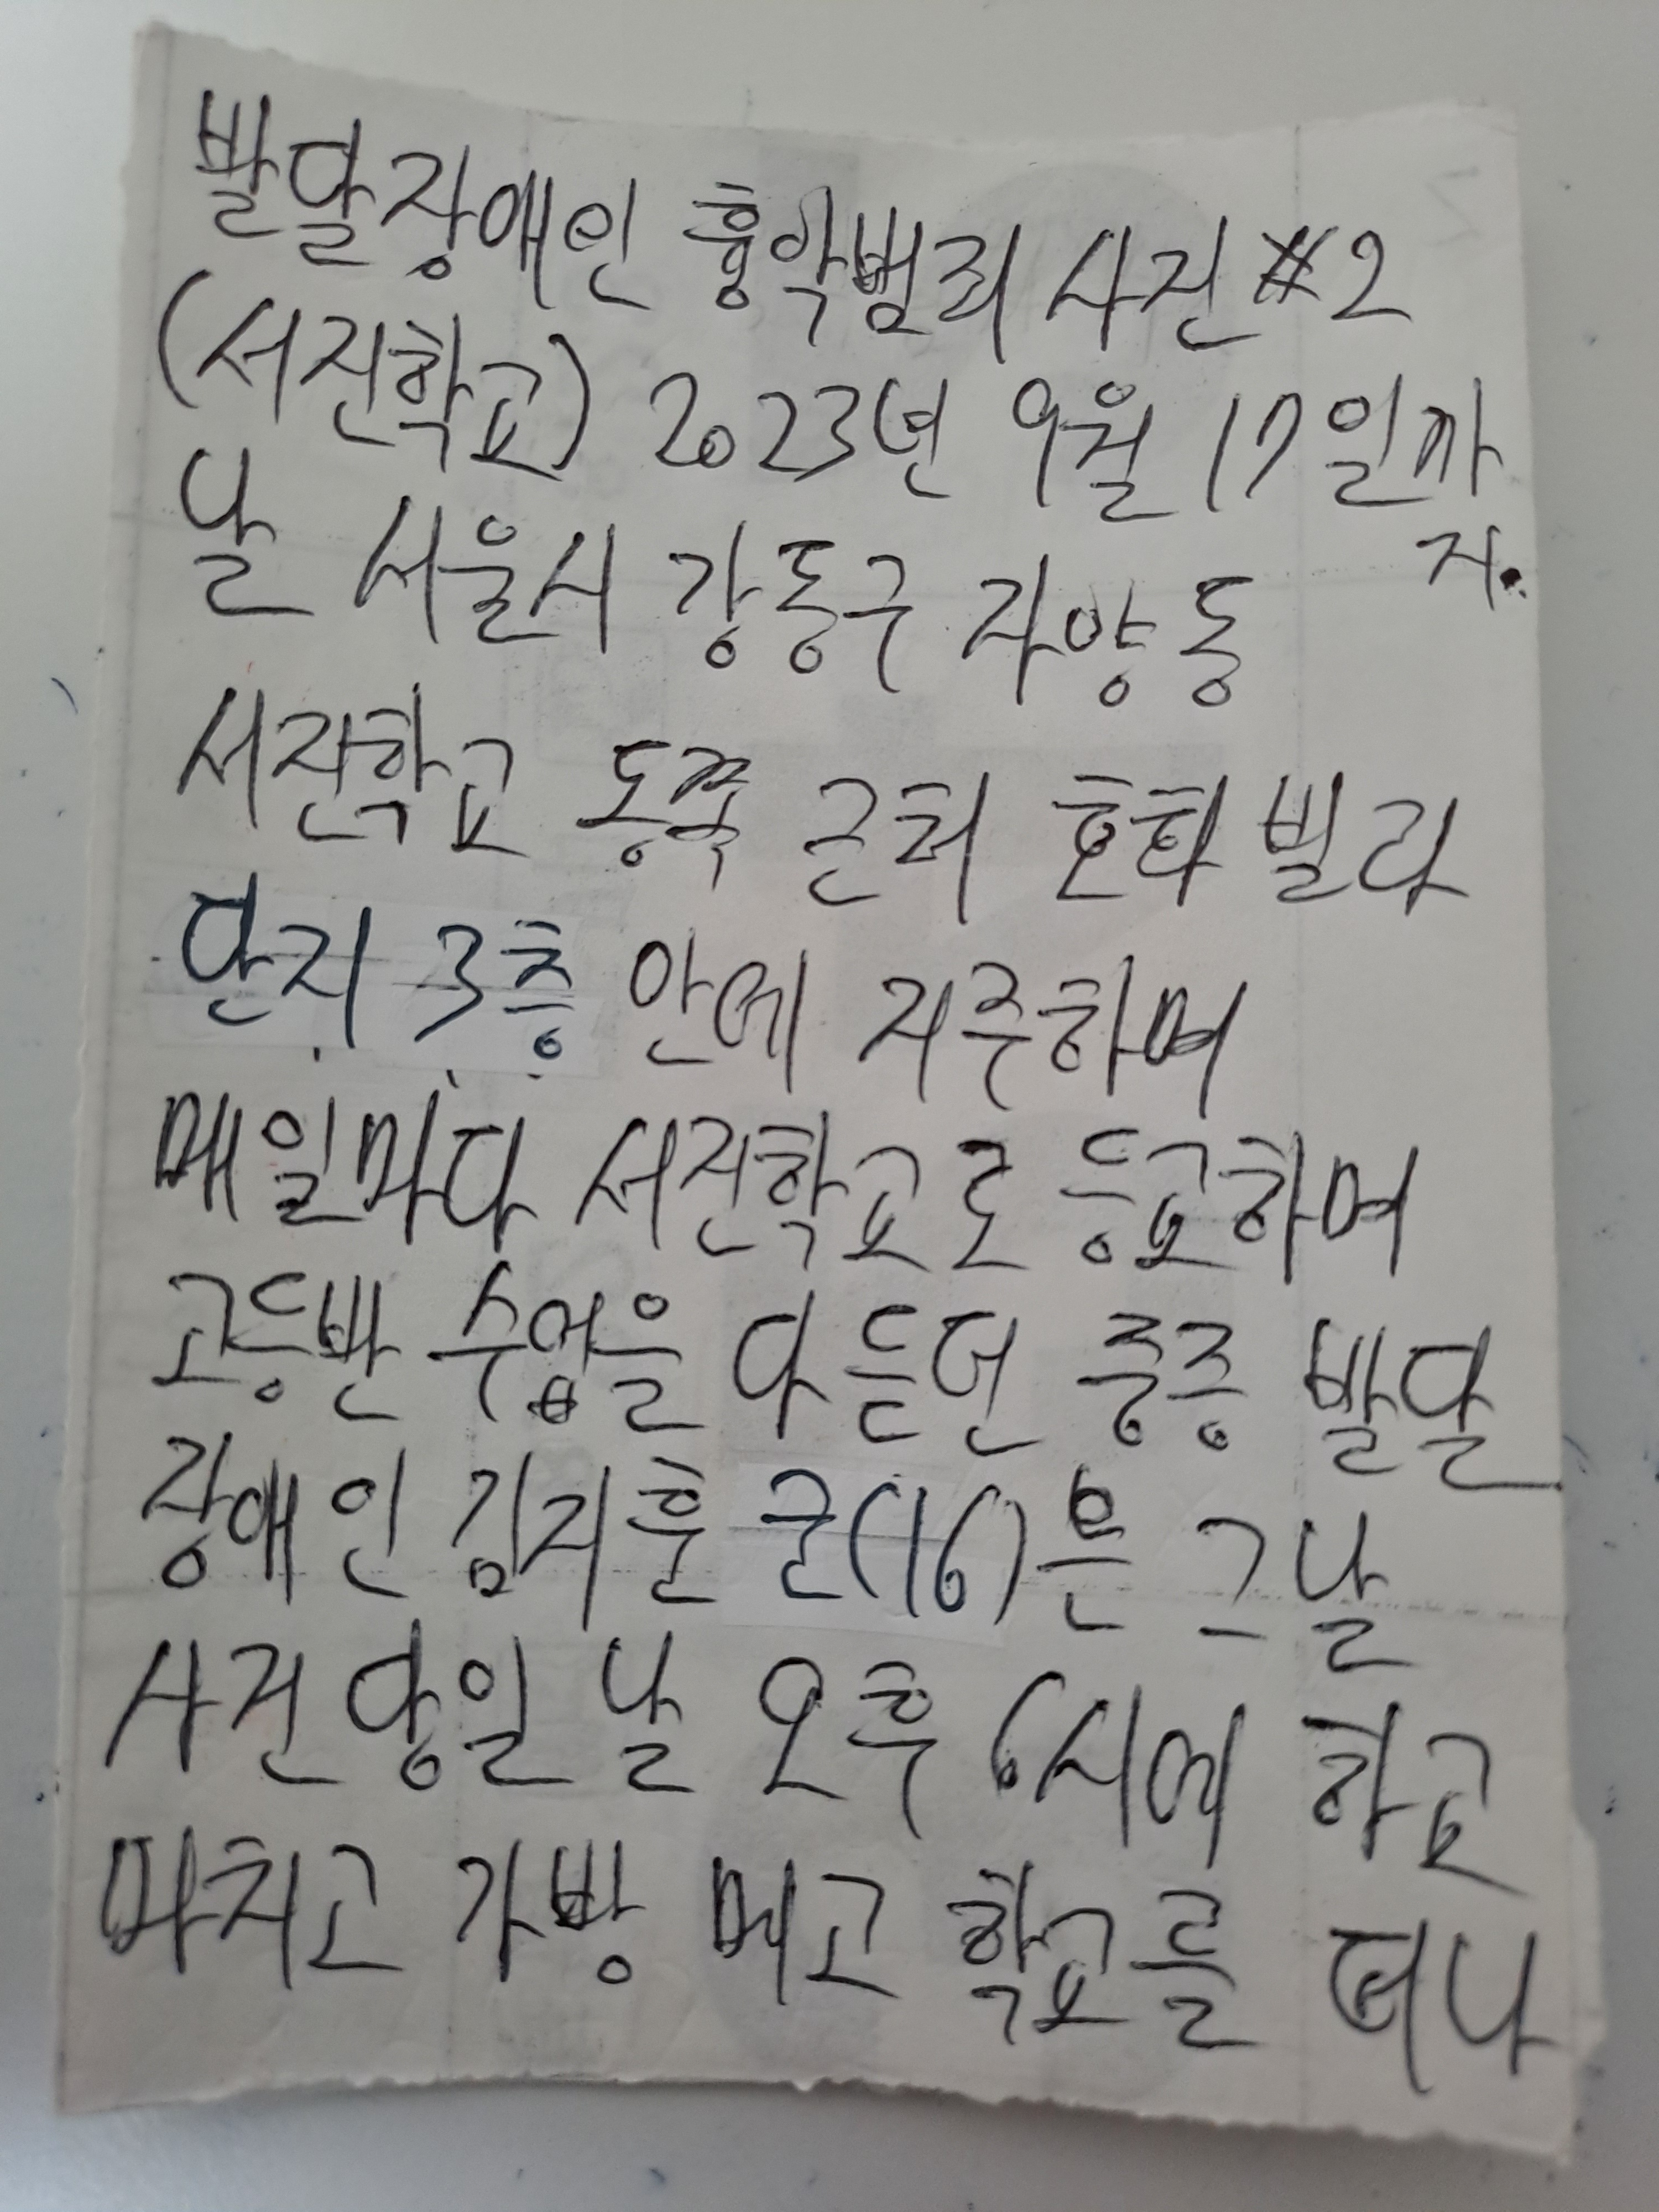 발달장애인 흉악범죄 사건 #2
(서진학교) 2023년 9월 17일까
지.
날 서울시 강동구 자양동
서진학교 동쪽 근처 호화 빌라
단지 3층 안에 거주하며
매일마다 서진학교로 등교하며
고등반 수업을 다 듣던 중증 발달
장애인 김지훈 군(16)은 그날
사건 당일 날 오후 6시에 하교
마치고 가방 메고 학교를 떠나